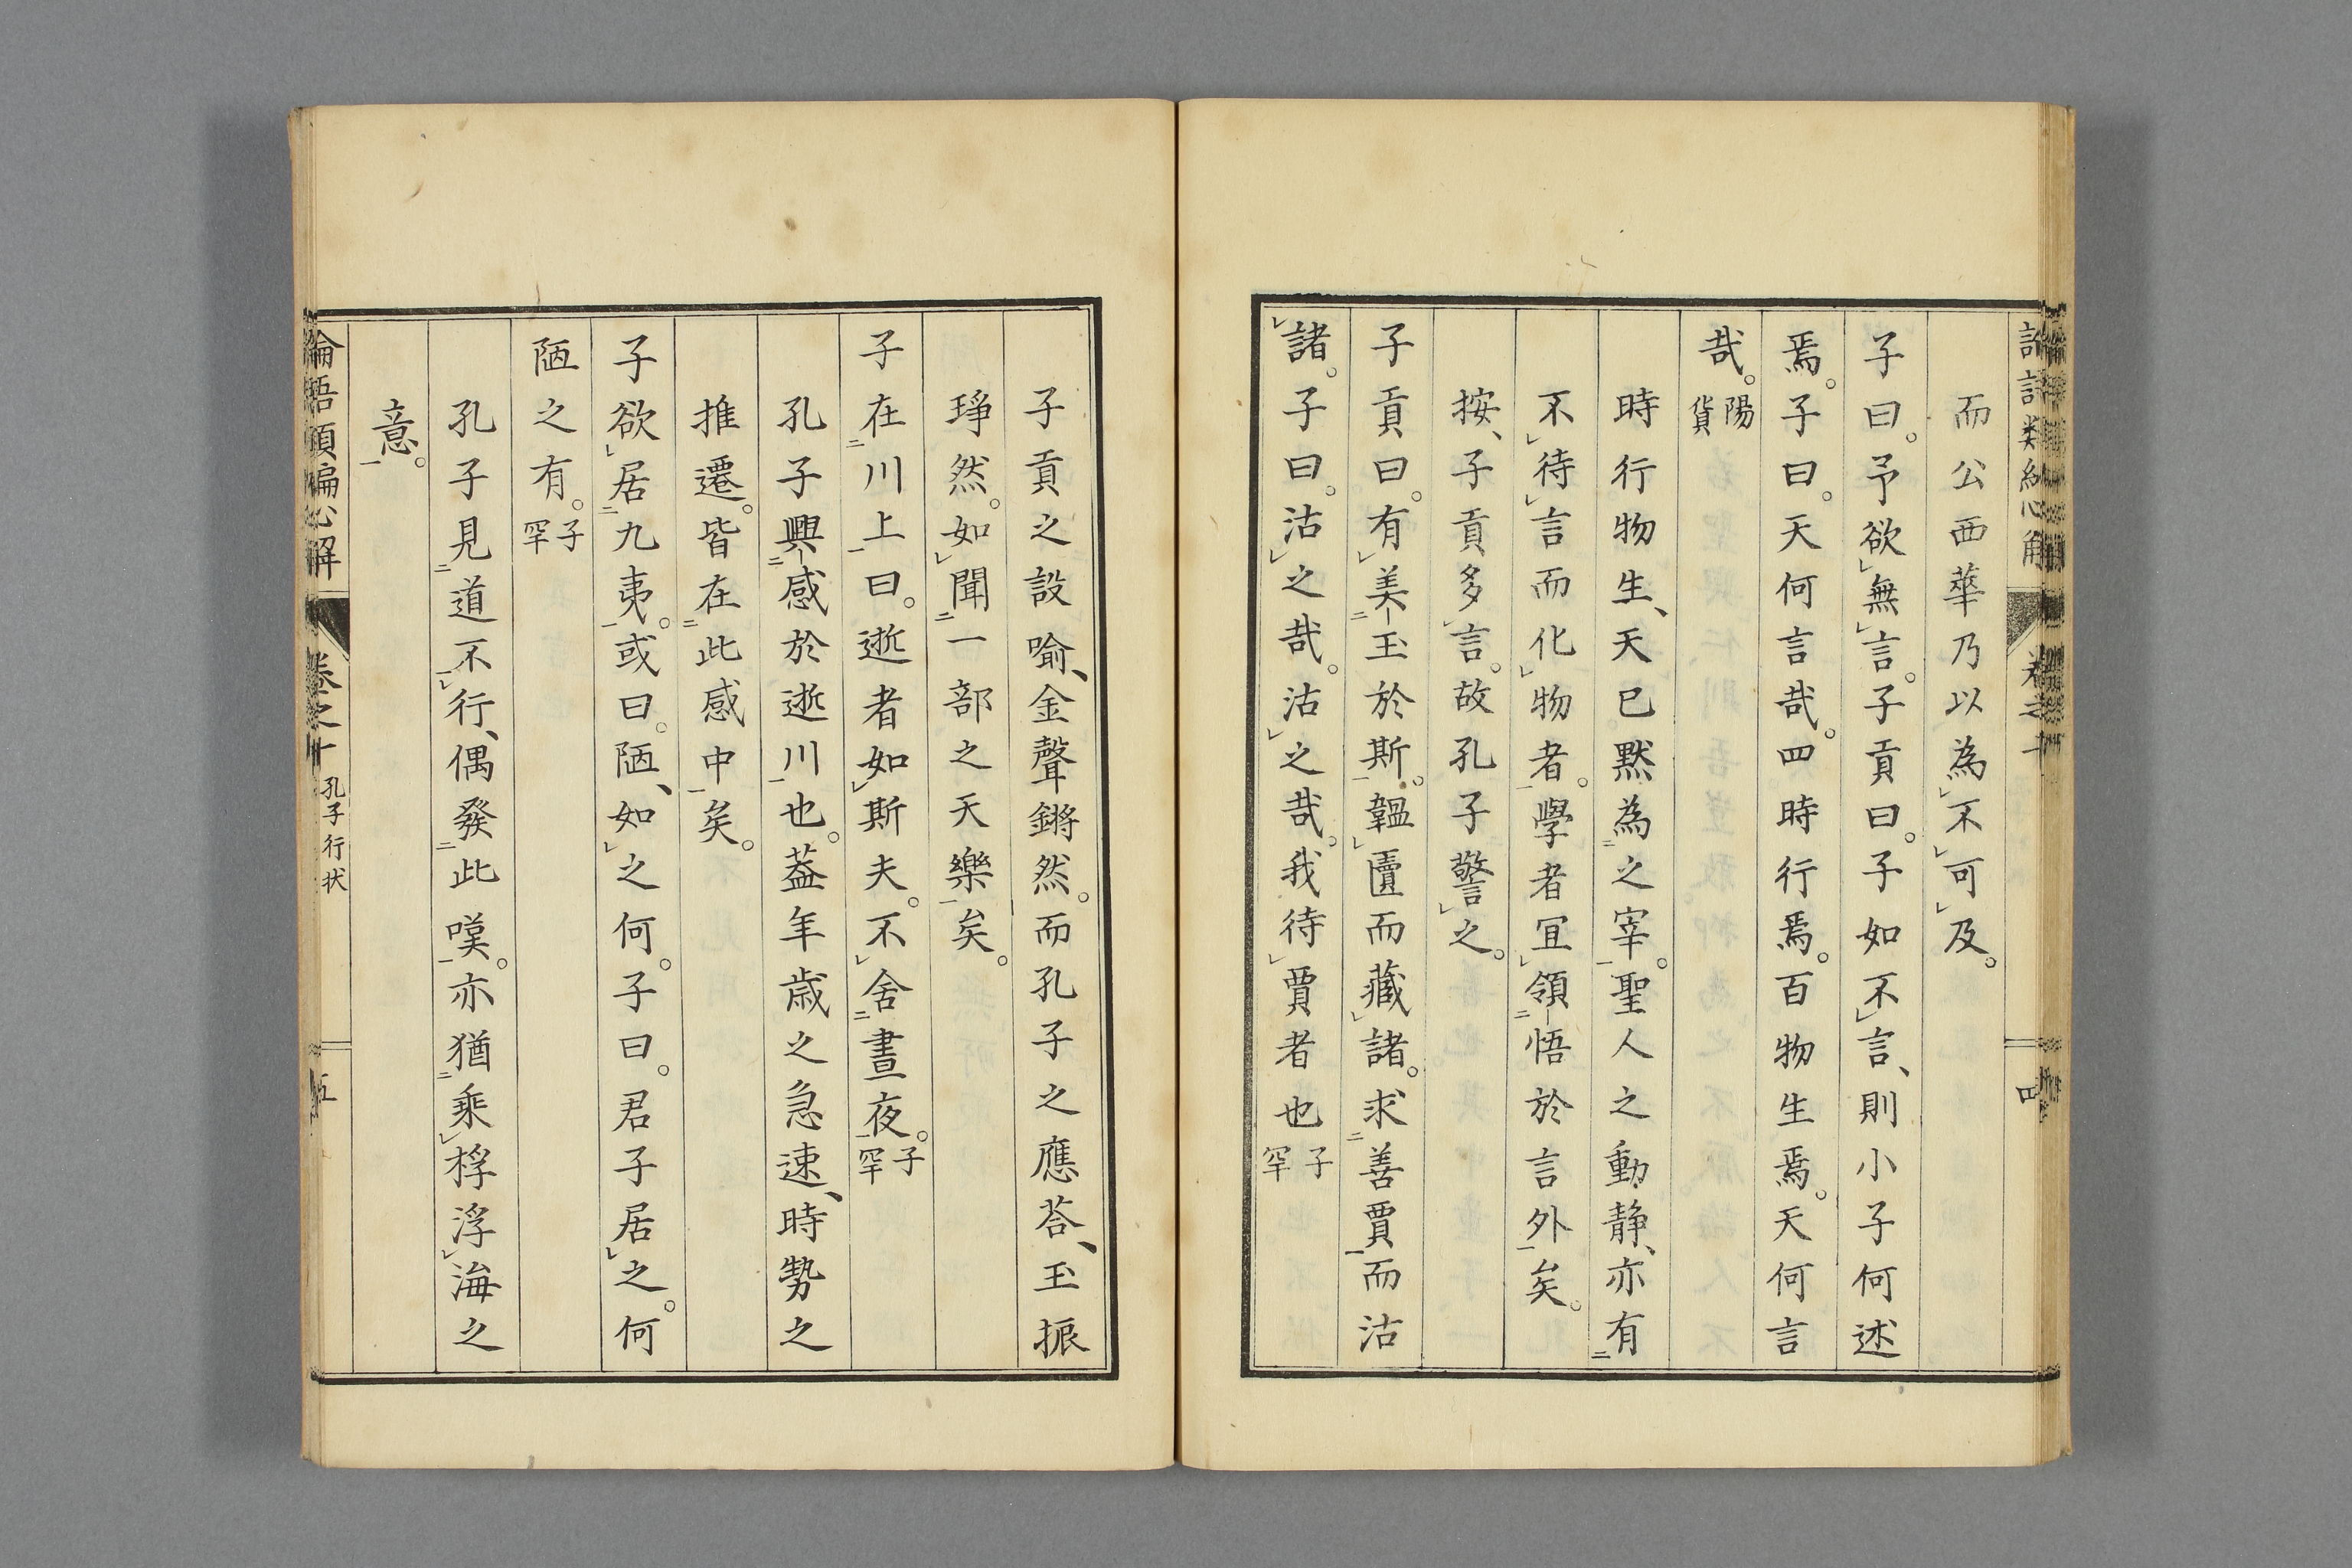 而公西華乃以為不可及。
子曰。予欲無言。子貢曰。子如不言、則小子何述
焉。子曰。天何言哉。四時行焉。百物生焉。天何言
哉。陽貨
時行物生、天已默為之宰。聖人之動静、亦有
不待言而化物者。學者宜領悟於言外矣。
按、子貢多言。故孔子警之。
子貢曰。有美玉於斯。韞匵而藏諸。求善賈而沽
諸。子曰。沽之哉。沽之哉。我待賈者也子罕
子貢之設喻、金聲鏘然。而孔子之應荅、玉振
琤然。如聞一部之天樂矣。
子在川上曰。逝者如斯夫。不舍晝夜。子罕
孔子興感於逝川也。葢年歳之急速、時勢之
推遷。皆在此感中矣。
子欲居九夷。或曰。陋、如之何。子曰。君子居之。何
陋之有。子罕
孔子見道不行、偶發此嘆。亦猶乘桴浮海之
意。
卷之十
孔子行状
五
四